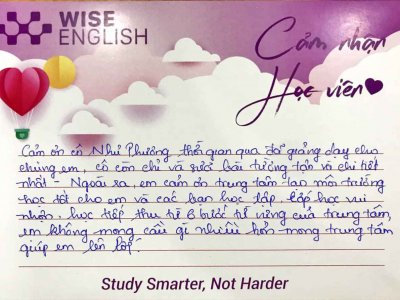 WISE
ENGLISH
Cảm nhận
Học viên
Cảm ơn cô Như Phương, thời gian qua đã giảng dạy cho
chúng em, cô còn chỉ và sửa bài tường tận và chi tiết
nhất - Ngoài ra, em cảm ơn trung tâm tạo môi trường
học tốt cho em và các bạn học tập, lớp học vui
nhộn. học tiếp thu từ 6 bước từ vựng của trung tâm,
em không mong cầu gì nhiều hơn mong trung tâm
giúp em lên lớp.
Study Smarter, Not Harder